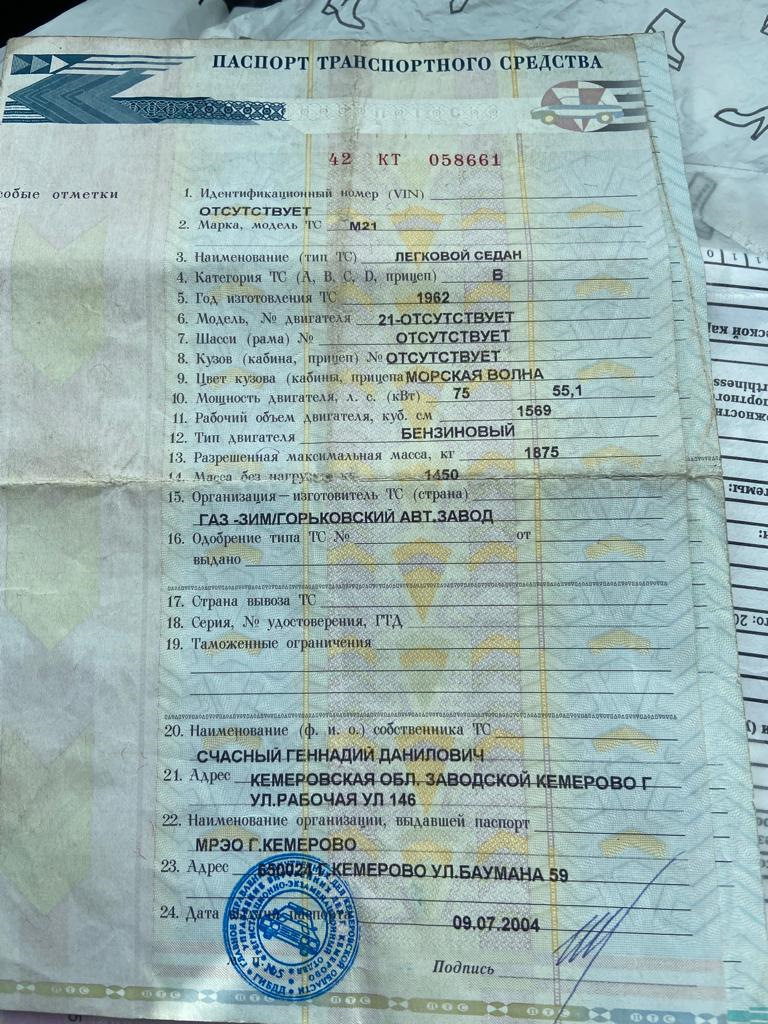 ПАСПОРТ ТРАНСПОРТНОГО СРЕДСТВА
42 КТ 058661
собые отметки
1. Идентификационный номер (VIN)
ОТСУТСТВУЕТ
2. Марка, модель ТС М21
3. Наименование (тип ТС) ЛЕГКОВОЙ СЕДАН
4. Категория ТС (A, B, C, D, прицеп) В
5. Год изготовления ТС 1962
6. Модель, № двигателя 21-ОТСУТСТВУЕТ
7. Шасси (рама) № ОТСУТСТВУЕТ
8. Кузов (кабина, прицеп) № ОТСУТСТВУЕТ
9. Цвет кузова (кабины, прицепа МОРСКАЯ ВОЛНА
10. Мощность двигателя, л. с. (кВт) 75 55,1
11. Рабочий объем двигателя, куб. см 1569
12. Тип двигателя БЕНЗИНОВЫЙ
13. Разрешенная максимальная масса, кг 1875
14. Масса без нагрузки, кг 1450
15. Организация—изготовитель ТС (страна)
ГАЗ -ЗИМ/ГОРЬКОВСКИЙ АВТ.ЗАВОД
16. Одобрение типа ТС № от
выдано
17. Страна вывоза ТС
18. Серия, № удостоверения, ГТД
19. Таможенные ограничения
20. Наименование (ф. и. о.) собственника ТС
СЧАСНЫЙ ГЕННАДИЙ ДАНИЛОВИЧ
21. Адрес КЕМЕРОВСКАЯ ОБЛ. ЗАВОДСКОЙ КЕМЕРОВО Г
УЛ.РАБОЧАЯ УЛ 146
22. Наименование организации, выдавшей паспорт
МРЭО Г.КЕМЕРОВО
23. Адрес Г.КЕМЕРОВО УЛ.БАУМАНА 59
24. Дата выдачи паспорта 09.07.2004
Подпись